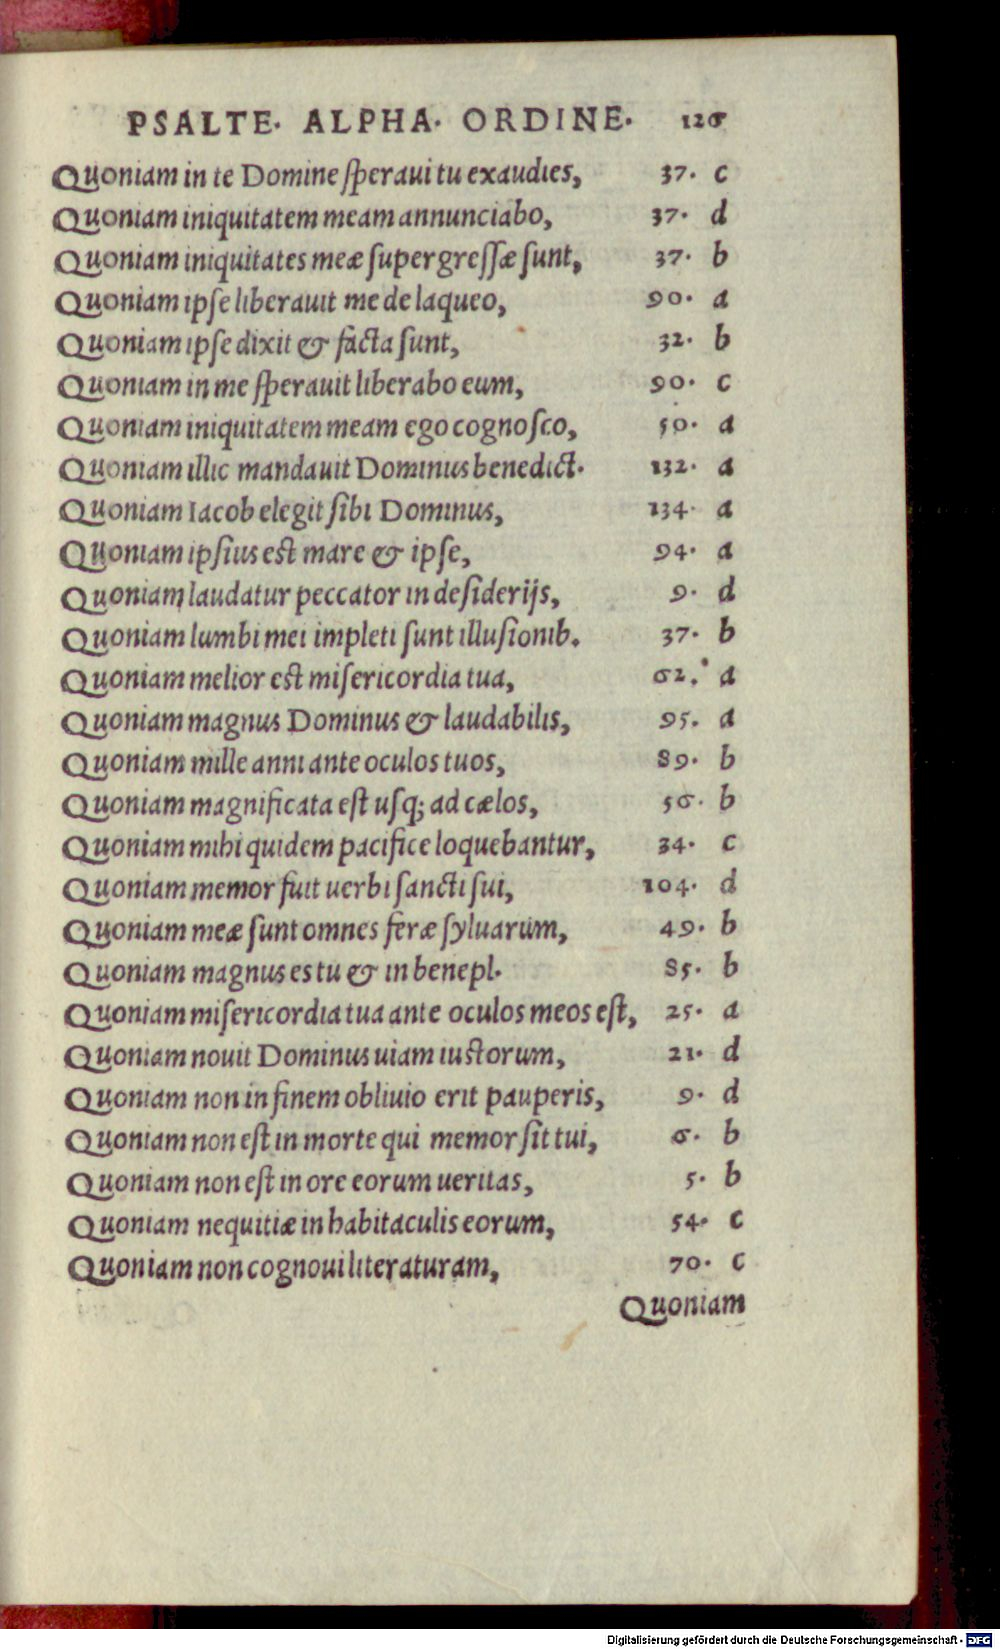 PSALTE· ALPHA· ORDINE· 126
Quoniam in te Domine ſperaui tu exaudies, 37· c
Quoniam iniquitatem meam annunciabo, 37· d
Quoniam iniquitates meæ ſupergreſſæ ſunt, 37· b
Quoniam ipſe liberauit me de laqueo, 90· a
Quoniam ipſe dixit & facta ſunt, 32· b
Quoniam in me ſperauit liberabo eum, 90· c
Quoniam iniquitatem meam ego cognoſco, 50· a
Quoniam illic mandauit Dominus benedict· 132· a
Quoniam Iacob elegit ſibi Dominus, 134· a
Quoniam ipſius eſt mare & ipſe, 94· a
Quoniam laudatur peccator in deſiderijs, 9· d
Quoniam lumbi mei impleti ſunt illuſionib. 37· b
Quoniam melior eſt miſericordia tua, 62. a
Quoniam magnus Dominus & laudabilis, 95. a
Quoniam mille anni ante oculos tuos, 89· b
Quoniam magnificata eſt uſq; ad cælos, 56· b
Quoniam mihi quidem pacifice loquebantur, 34· c
Quoniam memor fuit uerbi ſancti ſui, 104· d
Quoniam meæ ſunt omnes feræ ſyluarum, 49· b
Quoniam magnus es tu & in benepl· 85· b
Quoniam miſericordia tua ante oculos meos eſt, 25· a
Quoniam nouit Dominus uiam iuſtorum, 21· d
Quoniam non in finem obliuio erit pauperis, 9· d
Quoniam non eſt in morte qui memor ſit tui, 6· b
Quoniam non eſt in ore eorum ueritas, 5· b
Quoniam nequitiæ in habitaculis eorum, 54· c
Quoniam non cognoui literaturam, 70· c
Quoniam
Digitalisierung gefördert durch die Deutsche Forschungsgemeinschaft - DFG